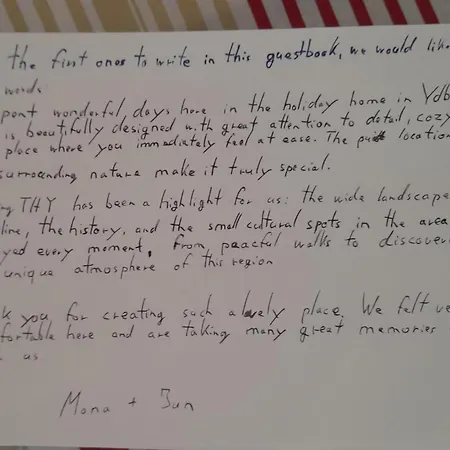 the first ones to write in this guestbook, we would like
words.
pent wonderful days here in the holiday home in Ydb
is beautifully designed with great attention to detail, cozy
place where you immediately feel at ease. The location
surrounding nature make it truly special.
THY has been a highlight for us: the wide landscape
line, the history, and the small cultural spots in the area
yed every moment, from peacful walks to discoveri
unique atmosphere of this region
k you for creating such a lovely place. We felt ve
fortable here and are taking many great memories
us.
Mona + Jan